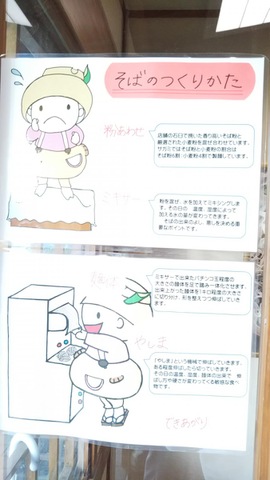 そばのつくりかた
粉あわせ
店舗の石臼で挽いた香り高いそば粉と
厳選された小麦粉を混ぜ合わせています。
サガミではそば粉と小麦粉の割合は
そば粉6割:小麦粉4割で製麺しています。
ミキサー
粉を混ぜ、水を加えてミキシングしま
す。その日の、温度、湿度によって
加える水の量が変わってきます。
そばの出来のよし、悪しを決める重
要なポイントです。
ミキサーで出来たパチンコ玉程度の
大きさの麺体を足で踏み一体化させます。
出来上がった麺体を1キロ程度の大きさ
に切り分け、形を整えつつ伸ばしていき
ます。
やしま
「やしま」という機械で伸ばしていきます。
ある程度伸ばしたら切っていきます。
その日の温度、湿度、麺体の出来で、伸
ばし方や硬さが変わってくる敏感な食べ
物です。
できあがり